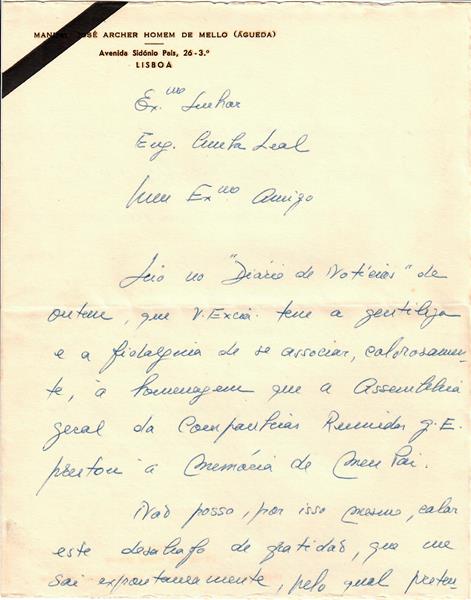 MANUEL JOSÉ ARCHER HOMEM DE MELLO (ÁGUEDA)
Avenida Sidónio Pais, 26-3.º
LISBOA
Ex.mo Senhor
Eng. Cunha Leal
Meu Ex.mo Amigo
Leio no "Diário de Notícias" de
ontem, que V. Excia. tem a gentileza
e a fidalguia de se associar, calorosamen-
te, à homenagem que a Assembleia
geral da Companhias Reunidas g. E.
prestou à memória de meu Pai.
Não posso, por isso mesmo, calar
este desabafo de gratidão, que me
sai expontaneamente, pelo qual preten-